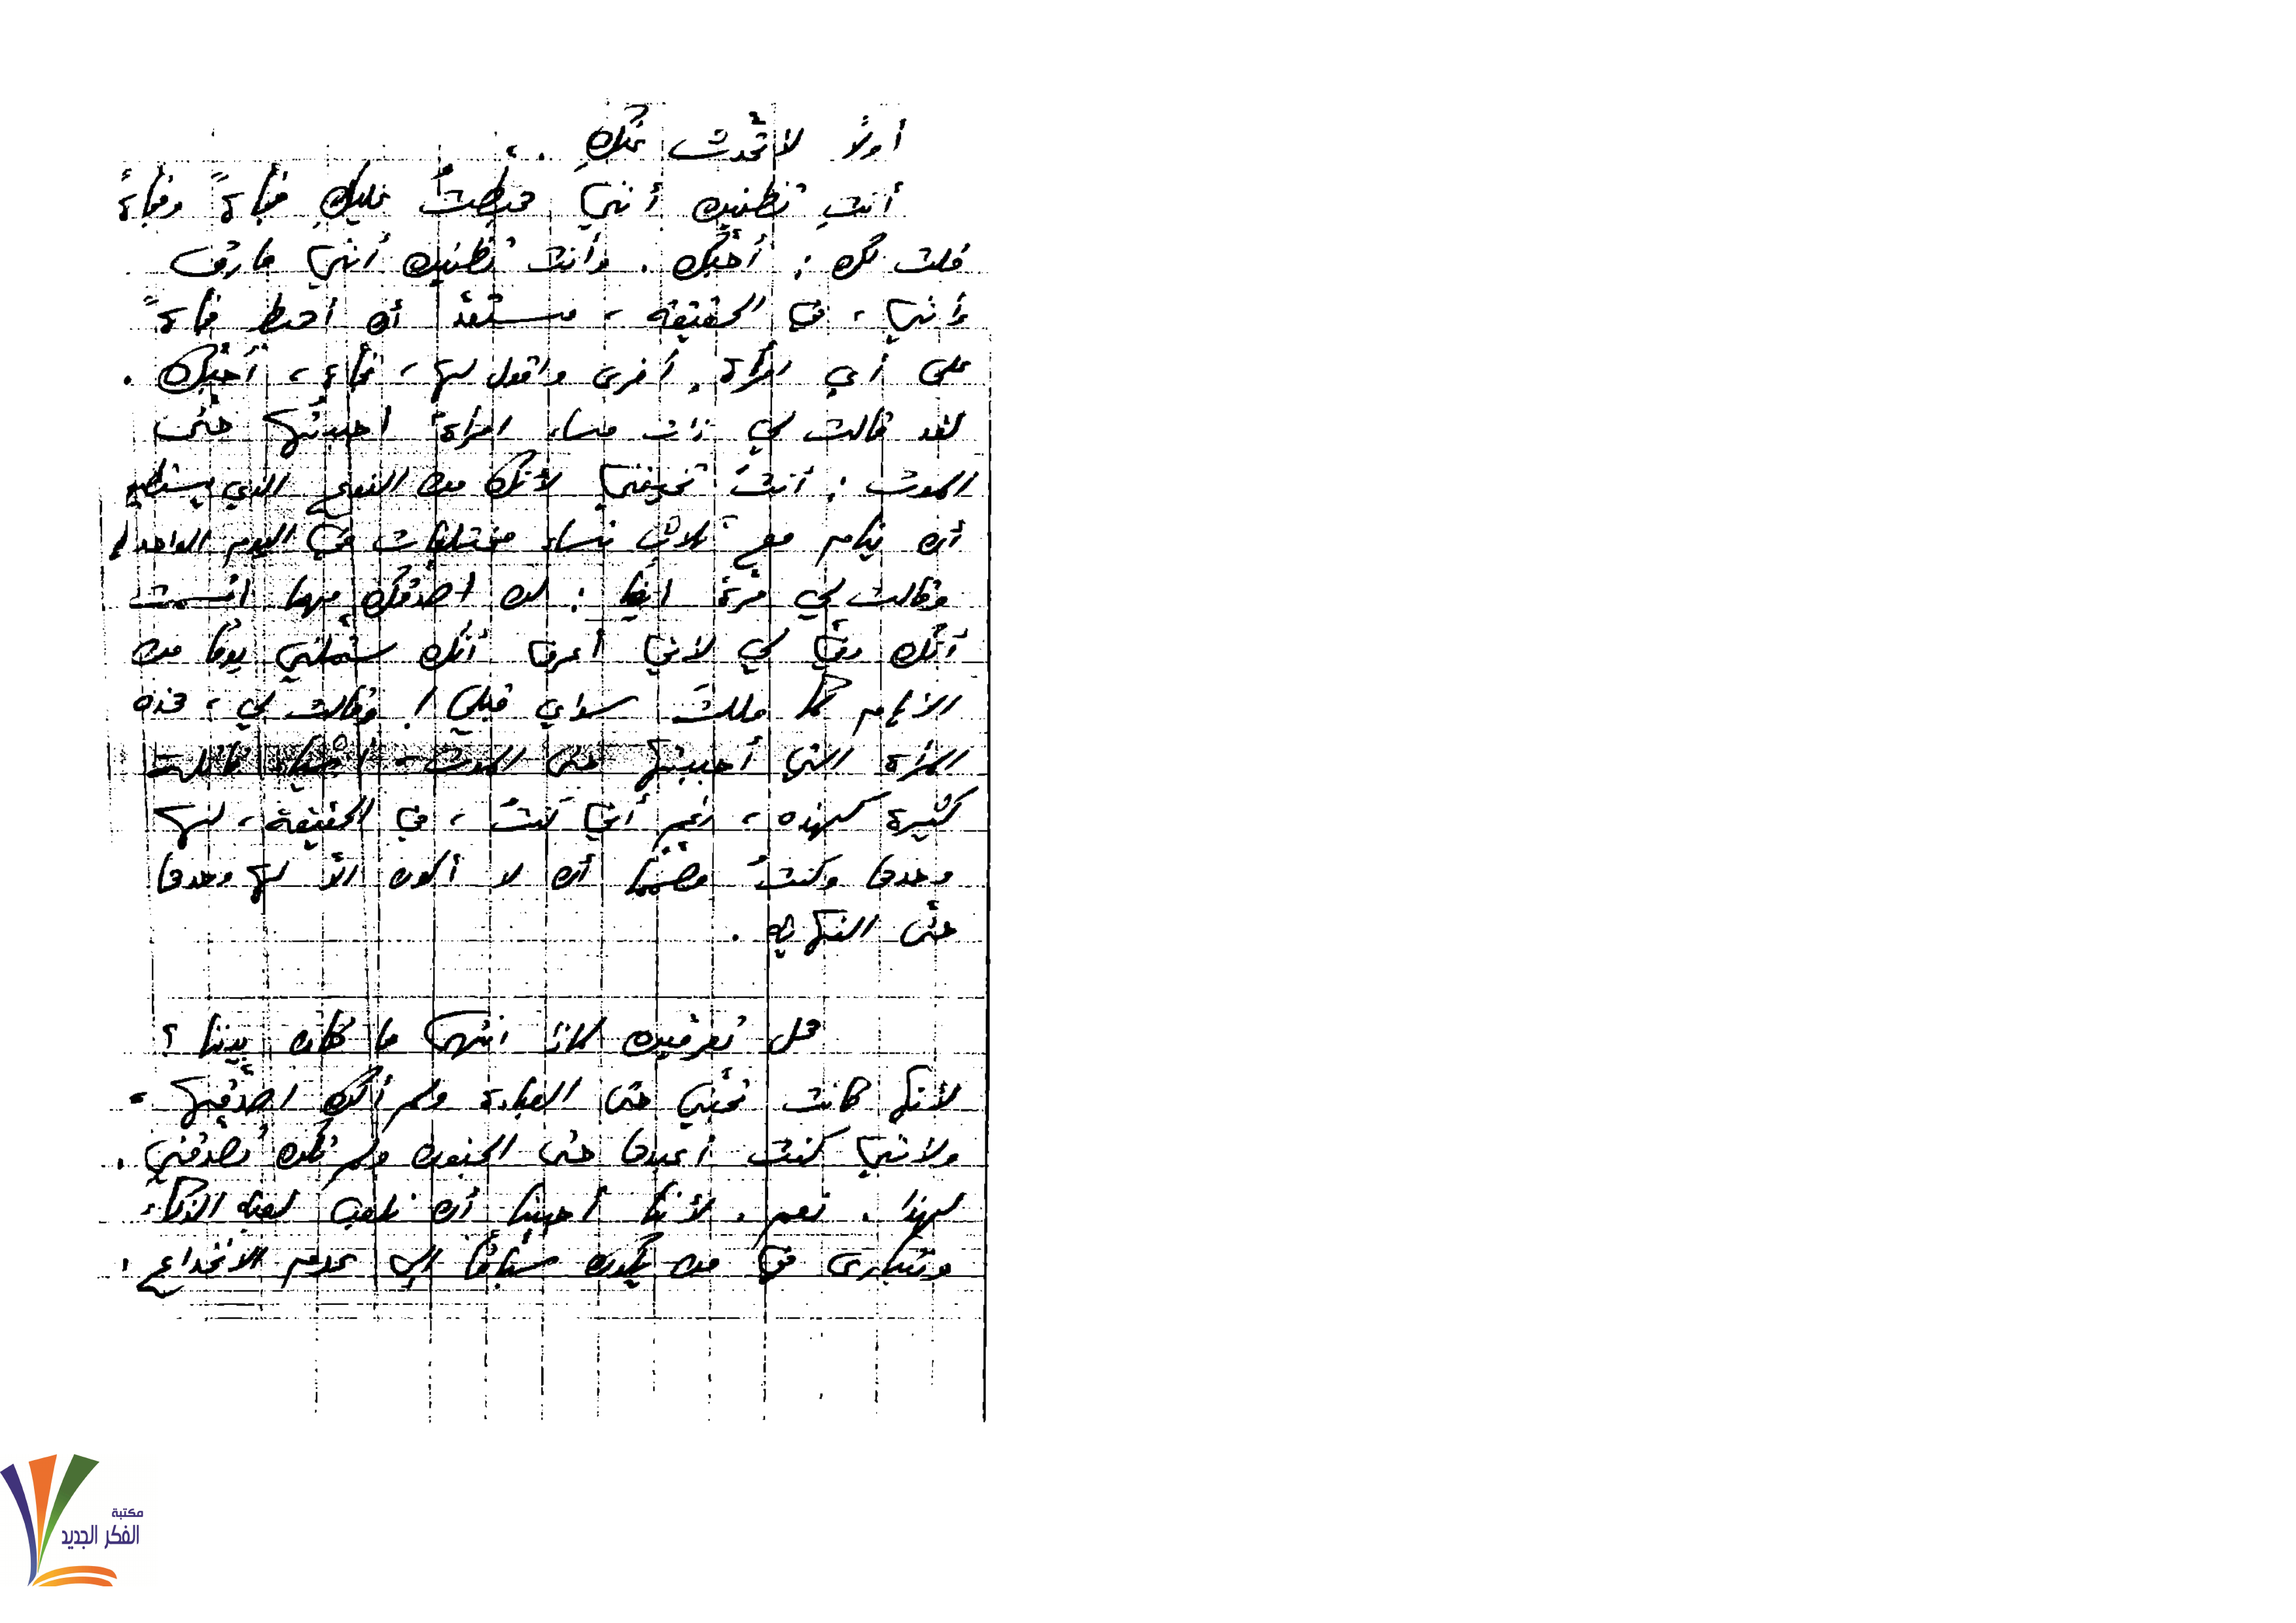 أولاً لأتحدث عنكِ ..
أنتِ تظنين أنني هبطتُ عليكِ فجأةً وفجأةً
قلت لك : أحبك . وأنت تظنين أنني مارق
وأنني ، في الحقيقة ، مستعدّ أن أهبط فجأةً
على أي امرأة أخرى وأقول لها ، فجأة ، أحبّك .
لقد قالت لي ذات مساء امرأة أحببتُها حتى
الموت : أنتَ تخيفني لأنك من النوع الذي يستطيع
أن ينام مع ثلاث نساء مختلفات في اليوم الواحد !
وقالت لي مرة أيضاً : لن أصدقك مهما أقسمت
أنك وفيّ لي لأني أعرف أنك ستملني يوماً من
الأيام كما مللتَ سواي قبلي ! وقالت لي ، هذه
المرأة التي أحببتها حتى الموت ، أشياء قاتلة
كثيرة كهذه ، رغم أني كنتُ ، في الحقيقة ، لها
وحدها وكنتُ مصمّماً أن لا أكون إلاّ لها وحدها
حتّى النهاية .
هل تعرفين لماذا انتهى ما كان بيننا ؟
لأنها كانت تحبّني حتى العبادة ولم أكن أصدّقها ،
ولأنني كنت أعبدها حتى الجنون ولم تكن تصدقني .
لهذا . نعم . لأننا أحببنا أن نلعب لعبة الذكاء
ونتبارى في من يكون سبّاقاً إلى عدم الانخداع .
مكتبة
الفكر الجديد